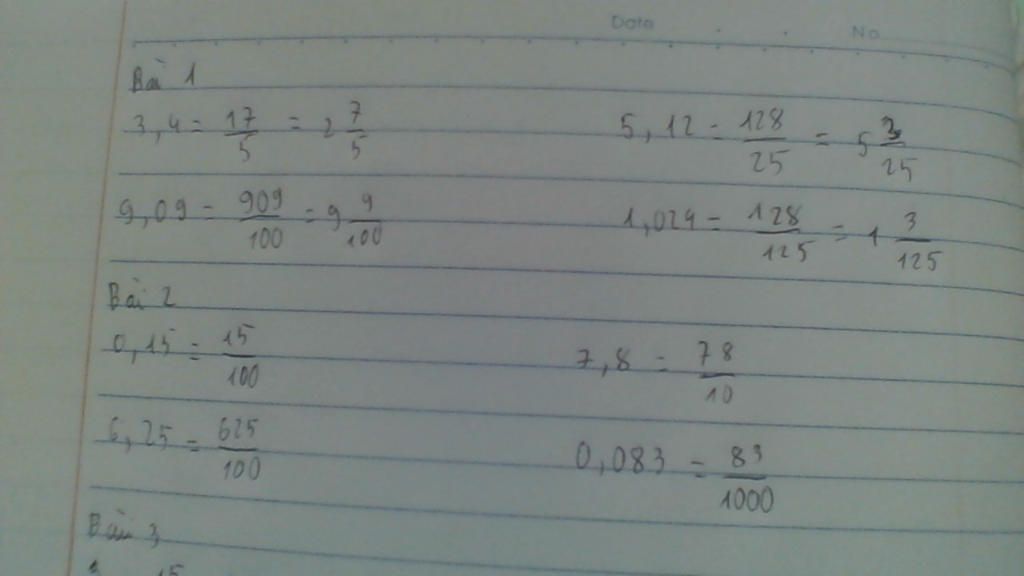 Date No
Bài 1
3,4 = 17/5 = 2 7/5 5,12 = 128/25 = 5 3/25
9,09 = 909/100 = 9 9/100 1,024 = 128/125 = 1 3/125
Bài 2
0,15 = 15/100 7,8 = 78/10
6,25 = 625/100 0,083 = 83/1000
Bài 3
15